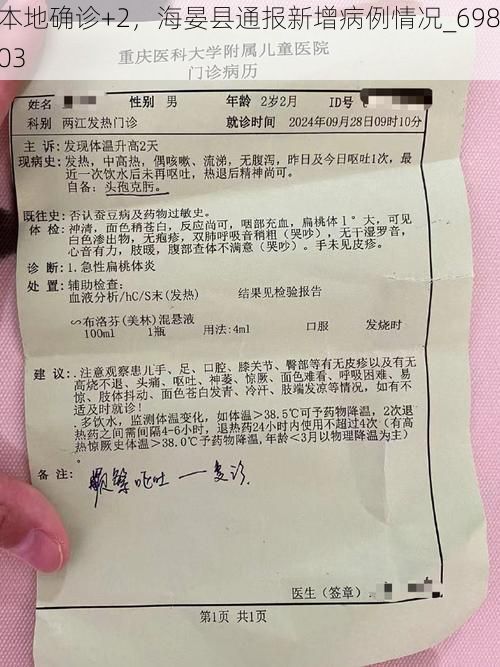 本地确诊+2，海晏县通报新增病例情况_698
03
重庆医科大学附属儿童医院
门诊病历
姓名
性别 男
年龄 2岁2月
ID号
科别 两江发热门诊
就诊时间 2024年09月28日09时10分
主 诉: 发现体温升高2天
现病史: 发热，中高热，偶咳嗽、流涕，无腹泻，昨日及今日呕吐1次，最
近一次饮水后未再呕吐，热退后精神尚可。
自备: 头孢克肟。
既往史: 否认蚕豆病及药物过敏史。
体 检: 神清，面色稍苍白，反应尚可，咽部充血，扁桃体Ⅰ°大，可见
白色渗出物，无疱疹，双肺呼吸音稍粗（哭吵），无干湿罗音，
心音有力，肢暖，腹部查体不满意（哭吵）。手未见皮疹。
诊 断: 1.急性扁桃体炎
处 置: 辅助检查:
血液分析/hC/S末(发热) 结果见检验报告
∽布洛芬(美林)混悬液
100ml 1瓶 用法: 4ml 口服 发烧时
建 议: .注意观察患儿手、足、口腔、膝关节、臀部等有无皮疹以及有无
高烧不退、头痛、呕吐、神萎、惊厥、面色难看、呼吸困难、易
惊、肢体抖动、面色苍白发青、冷汗、肢端发凉等情况，如有不
适及时就诊!
.多饮水，监测体温变化，如体温>38.5℃可予药物降温，2次退
热药之间需间隔4-6小时，退热药24小时内使用不超过4次（有高
热惊厥史体温>38.0℃予药物降温,年龄<3月以物理降温为主）
.
备 注: 频繁呕吐 — 复诊
医生（签章）
第1页 共1页